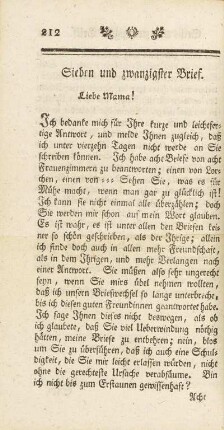 212
Sieben und zwanzigster Brief.
Liebe Mama!
Ich bedanke mich für Ihre kurze und leichtfer-
tige Antwort, und melde Ihnen zugleich, daß
ich unter vierzehn Tagen nicht werde an Sie
schreiben können. Ich habe acht Briefe von acht
Frauenzimmern zu beantworten; einen von Lor-
chen, einen von Sehen Sie, was es für
Mühe macht, wenn man gar zu glücklich ist!
Ich kann sie nicht einmal alle überzählen; doch
Sie werden mir schon auf mein Wort glauben.
Es ist wahr, es ist unter allen den Briefen kei-
ner so schön geschrieben, als der Ihrige; allein
ich finde doch auch in allen mehr Freundschaft,
als in dem Ihrigen, und mehr Verlangen nach
einer Antwort. Sie müßen also sehr ungerecht
seyn, wenn Sie mirs übel nehmen wollten,
daß ich unsern Briefwechsel so lange unterbreche,
bis ich diesen guten Freundinnen geantwortet habe.
Ich sage Ihnen dieses nicht deswegen, als ob
ich glaubete, daß Sie viel Ueberwindung nöthig
hätten, meine Briefe zu entbehren; nein, blos
um Sie zu überführen, daß ich auch eine Schul-
digkeit, die Sie mir leicht erlassen würden, nicht
ohne die gerechteste Ursache verabsäume. Bin
ich nicht bis zum Erstaunen gewissenhaft?
Acht